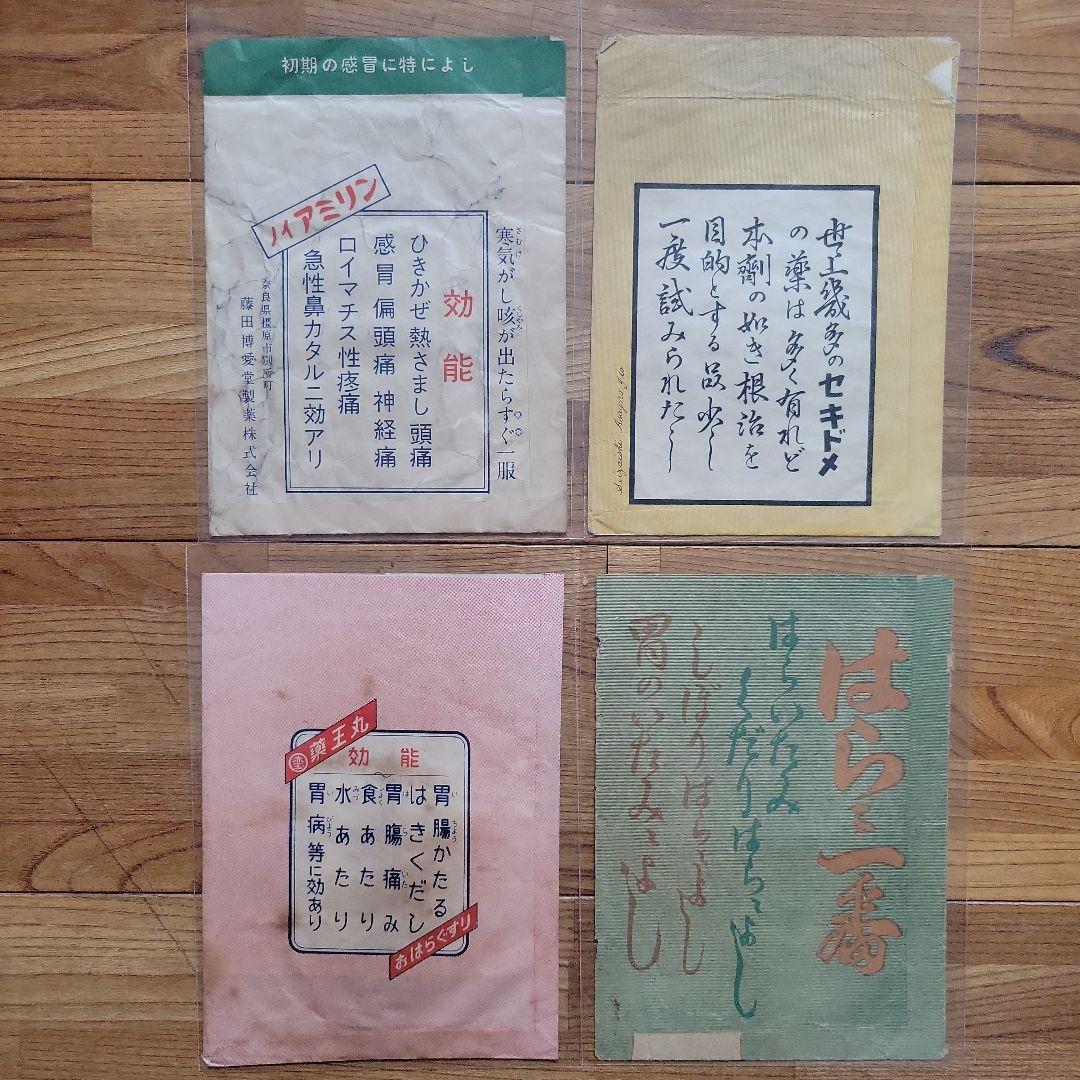 初期の感冒に特によし
ノイアミリン
寒気がし咳が出たらすぐ一服
効能
ひきかぜ 熱さまし 頭痛
感冒 偏頭痛 神経痛
ロイマチス性疼痛
急性鼻カタルニ効アリ
奈良県橿原市別所町
藤田博愛堂製薬株式会社
世上幾多のセキドメ
の薬は多く有れど
本剤の如き根治を
目的とする品少し
一度試みられたし
薬王丸
効能
胃腸かたる
はきくだし
胃腸痛み
食あたり
水あたり
胃病等に効あり
おはらぐすり
はらニ一番
はらいたみ
くだりはらによし
しぼりはらによし
胃のいたみによし